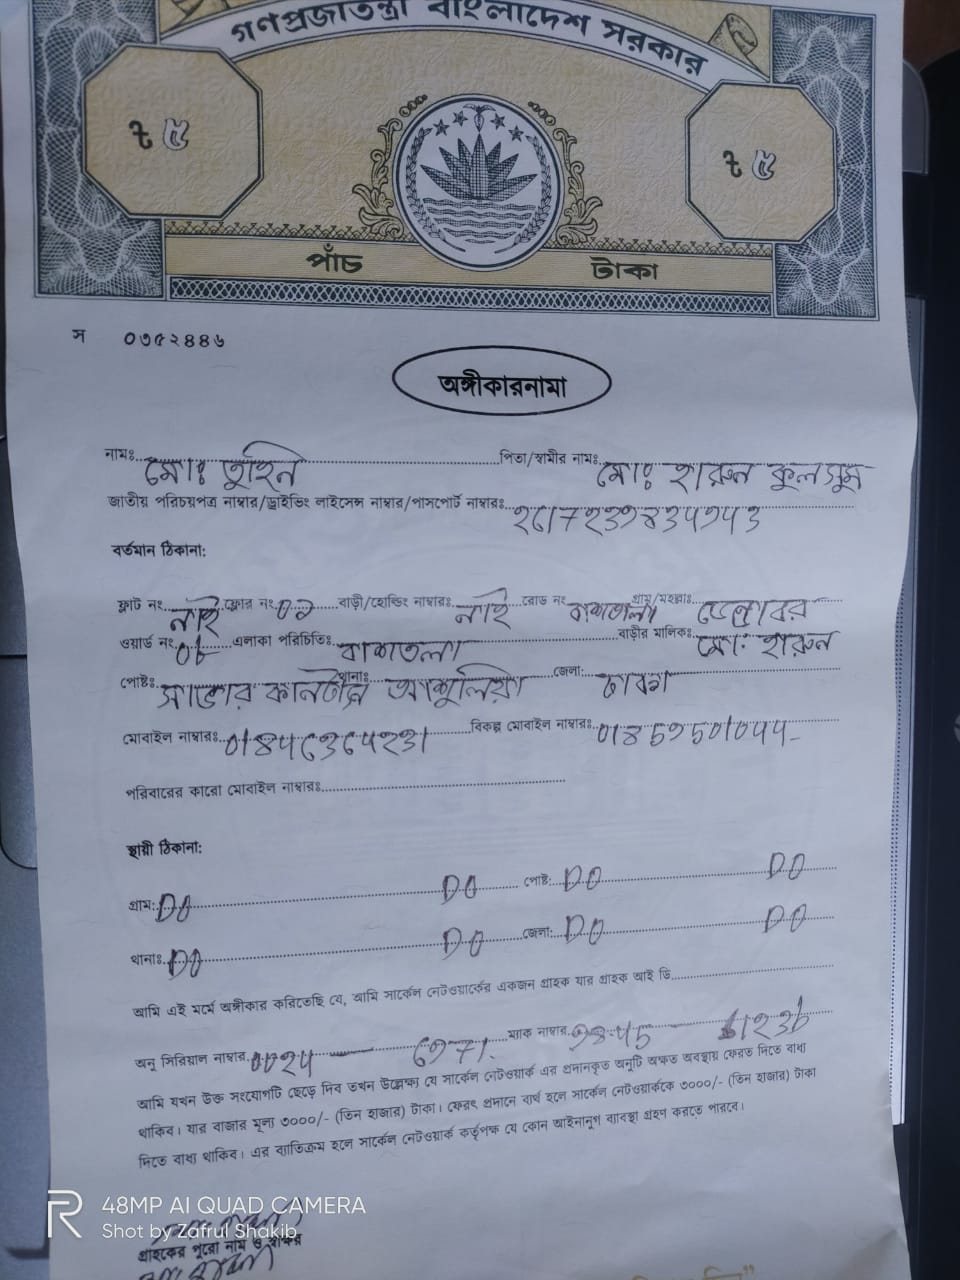 গণপ্রজাতন্ত্রী বাংলাদেশ সরকার
৳ ৫ ৳ ৫
পাঁচ টাকা
স ০৩৫২৪৪৬
অঙ্গীকারনামা
নামঃ মোঃ তুহিন পিতা/স্বামীর নামঃ মোঃ হারুন কুলসুম
জাতীয় পরিচয়পত্র নাম্বার/ড্রাইভিং লাইসেন্স নাম্বার/পাসপোর্ট নাম্বারঃ
বর্তমান ঠিকানা:
ফ্লাট নং নাই ফ্লোর নং ০২ বাড়ী/হোল্ডিং নাম্বারঃ নাই রোড নং বাশতলা গ্রাম/মহল্লাঃ
ওয়ার্ড নং এলাকা পরিচিতিঃ বাশতলা বাড়ীর মালিকঃ মো: হারুন
পোষ্টঃ সাভার থানাঃ আশুলিয়া জেলা: ঢাকা
মোবাইল নাম্বারঃ বিকল্প মোবাইল নাম্বারঃ
পরিবারের কারো মোবাইল নাম্বারঃ
স্থায়ী ঠিকানা:
গ্রাম: DO DO পোষ্ট: DO DO
থানাঃ DO DO জেলা: DO DO
আমি এই মর্মে অঙ্গীকার করিতেছি যে, আমি সার্কেল নেটওয়ার্কের একজন গ্রাহক যার গ্রাহক আই ডি
অনু সিরিয়াল নাম্বার ম্যাক নাম্বার
আমি যখন উক্ত সংযোগটি ছেড়ে দিব তখন উল্লেক্ষ্য যে সার্কেল নেটওয়ার্ক এর প্রদানকৃত অনুটি অক্ষত অবস্থায় ফেরত দিতে বাধ্য
থাকিব। যার বাজার মূল্য ৩০০০/- (তিন হাজার) টাকা। ফেরৎ প্রদানে ব্যর্থ হলে সার্কেল নেটওয়ার্ককে ৩০০০/- (তিন হাজার) টাকা
দিতে বাধ্য থাকিব। এর ব্যাতিক্রম হলে সার্কেল নেটওয়ার্ক কর্তৃপক্ষ যে কোন আইনানুগ ব্যাবস্থা গ্রহণ করতে পারবে।
48MP AI QUAD CAMERA
Shot by Zafrul Shakib
গ্রাহকের পুরো নাম ও স্বাক্ষর